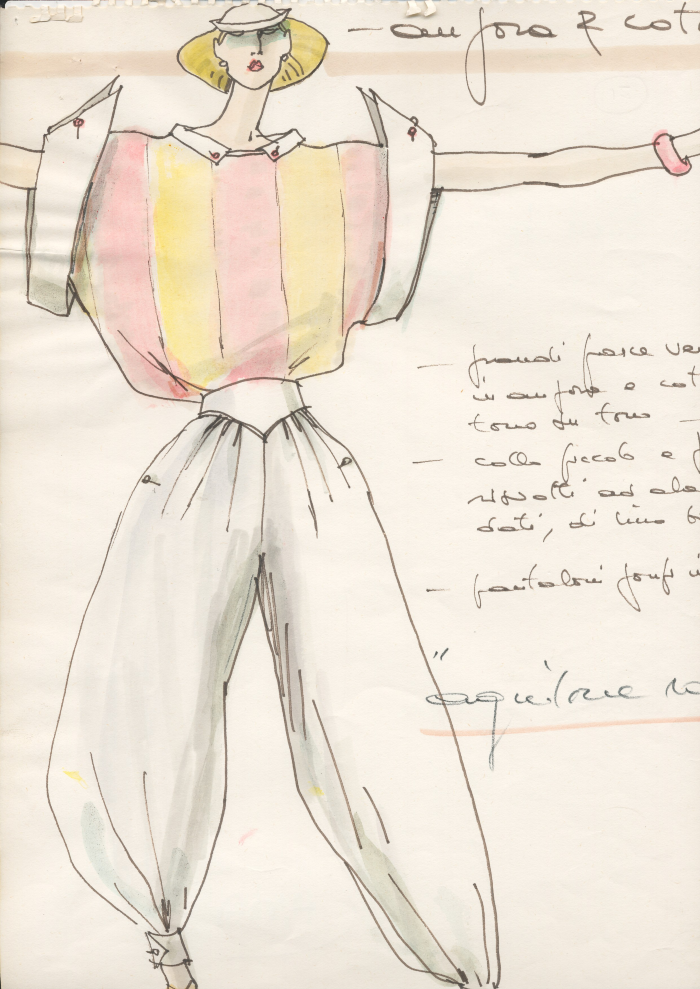 — angora & cot
— grandi fasce ver
in angora e cot
tono su tono —
— collo piccolo e
risvolti ad ala
dati, di lino b
— pantaloni gonfi i
" aquilone